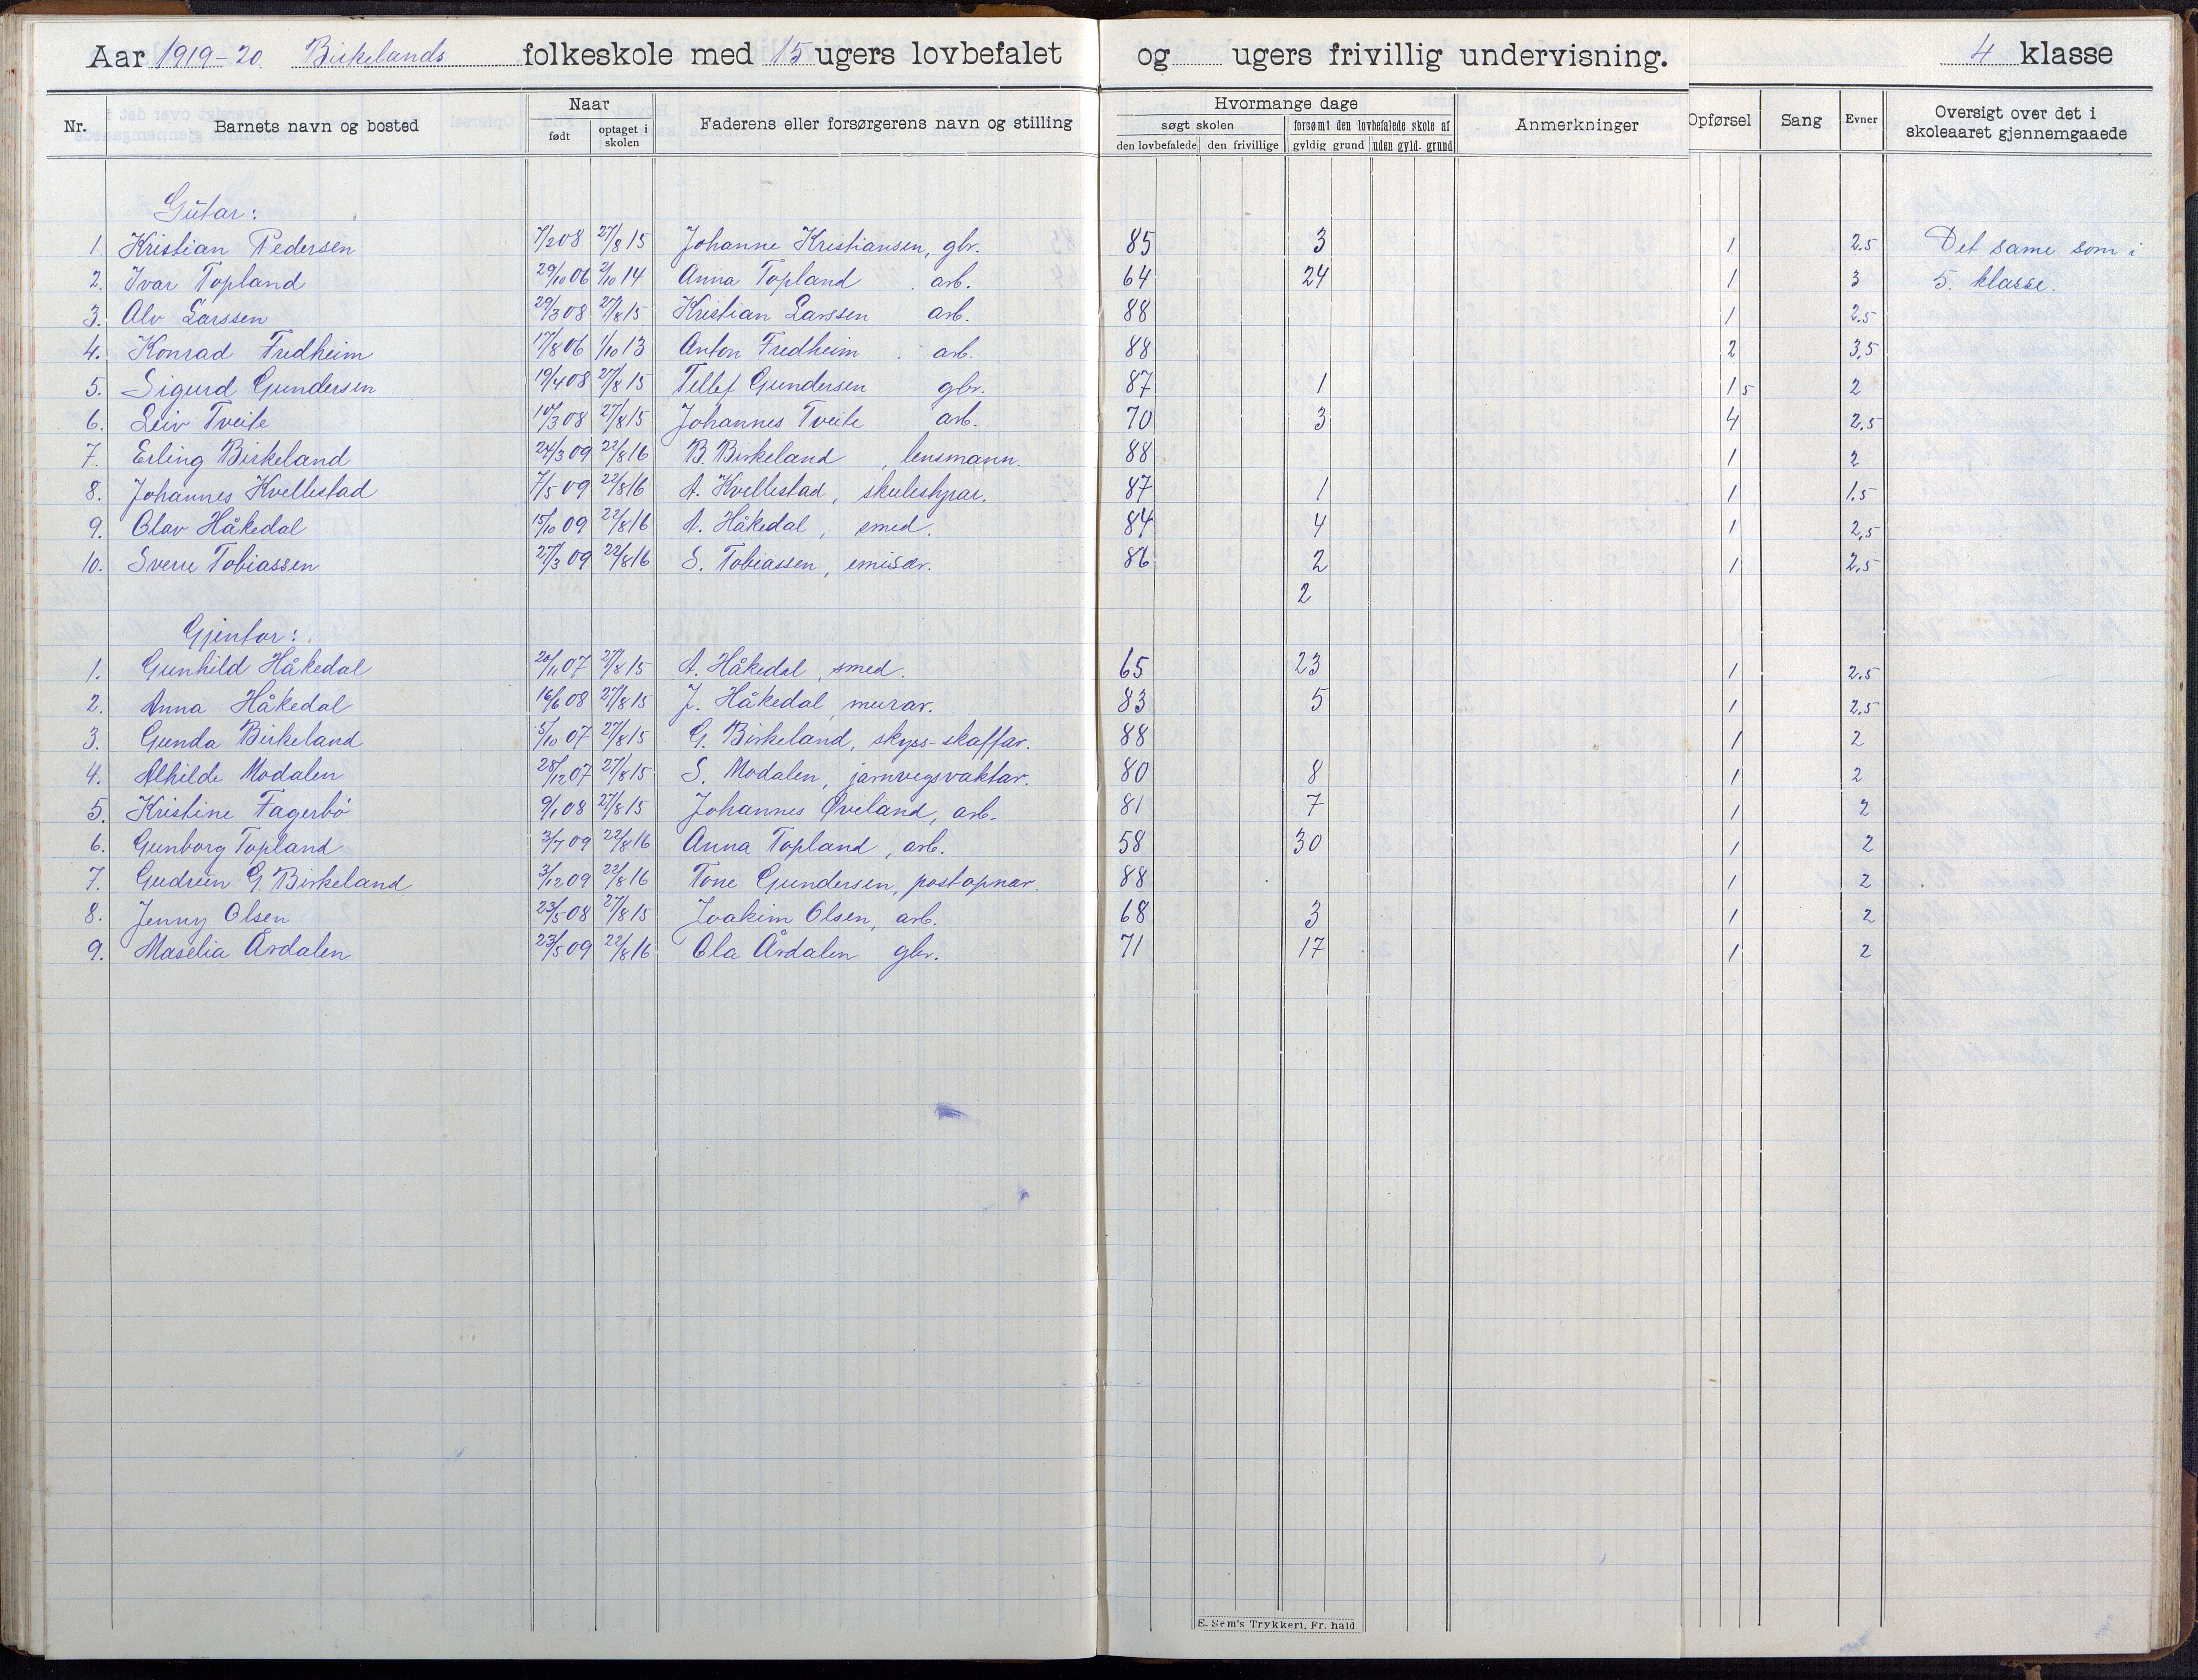 Aar 1919-20 Birkelands folkeskole med 15 ugers lovbefalet og ugers frivillig undervisning. 4 klasse
Nr. Barnets navn og bosted Naar født optaget i skolen Faderens eller forsørgerens navn og stilling Hvormange dage søgt skolen den lovbefalede den frivillige forsømt den lovbefalede skole af gyldig grund uden gyld. grund Anmerkninger Opførsel Sang Evner Oversigt over det i skoleaaret gjennemgaaede
Gutar:
1. Kristian Pedersen 7/2 08 27/8 15 Johanne Kristiansen, gbr. 85 3 1 2.5 Det same som i
2. Ivar Topland 29/10 06 2/10 14 Anna Topland arb. 64 24 1 3 5. klasse.
3. Alv Larssen 29/3 08 27/8 15 Kristian Larssen arb. 88 1 2.5
4. Konrad Fredheim 17/8 06 1/10 13 Anton Fredheim arb. 88 2 3,5
5. Sigurd Gundersen 19/4 08 27/8 15 Tellef Gundersen gbr. 87 1 1 5 2
6. Leiv Tveite 10/3 08 27/8 15 Johannes Tveite arb. 70 3 4 2,5
7. Erling Birkeland 24/3 09 22/8 16 B. Birkeland, lensmann. 88 1 2
8. Johannes Kvellestad 7/5 09 22/8 16 A. Kvellestad, skulestyrar. 87 1 1 1.5
9. Olav Håkedal 15/10 09 22/8 16 A. Håkedal, smed. 84 4 1 2,5
10. Sverre Tobiassen 27/3 09 22/8 16 S. Tobiassen, emisær. 86 2 1 2.5
2
Gjentor:
1. Gunhild Håkedal 20/11 07 27/8 15 A. Håkedal, smed. 65 23 1 2.5
2. Anna Håkedal 16/6 08 27/8 15 J. Håkedal, murar. 83 5 1 2,5
3. Gunda Birkeland 5/10 07 27/8 15 G. Birkeland, skyss-skaffar. 88 1 2
4. Alhilde Modalen 28/12 07 27/8 15 S. Modalen, jarnvegsvaktar. 80 8 1 2
5. Kristine Fagerbø 9/1 08 27/8 15 Johannes Øveland, arb. 81 7 1 2
6. Gunborg Topland 3/7 09 22/8 16 Anna Topland, arb. 58 30 1 2
7. Gudrun G. Birkeland 3/12 09 22/8 16 Tone Gundersen, postopnar. 88 1 2
8. Jenny Olsen 23/5 08 27/8 15 Joakim Olsen, arb. 68 3 1 2
9. Maselia Årdalen 23/5 09 22/8 16 Ola Årdalen gbr. 71 17 1 2
E. Sem's Trykkeri, Fr. hald